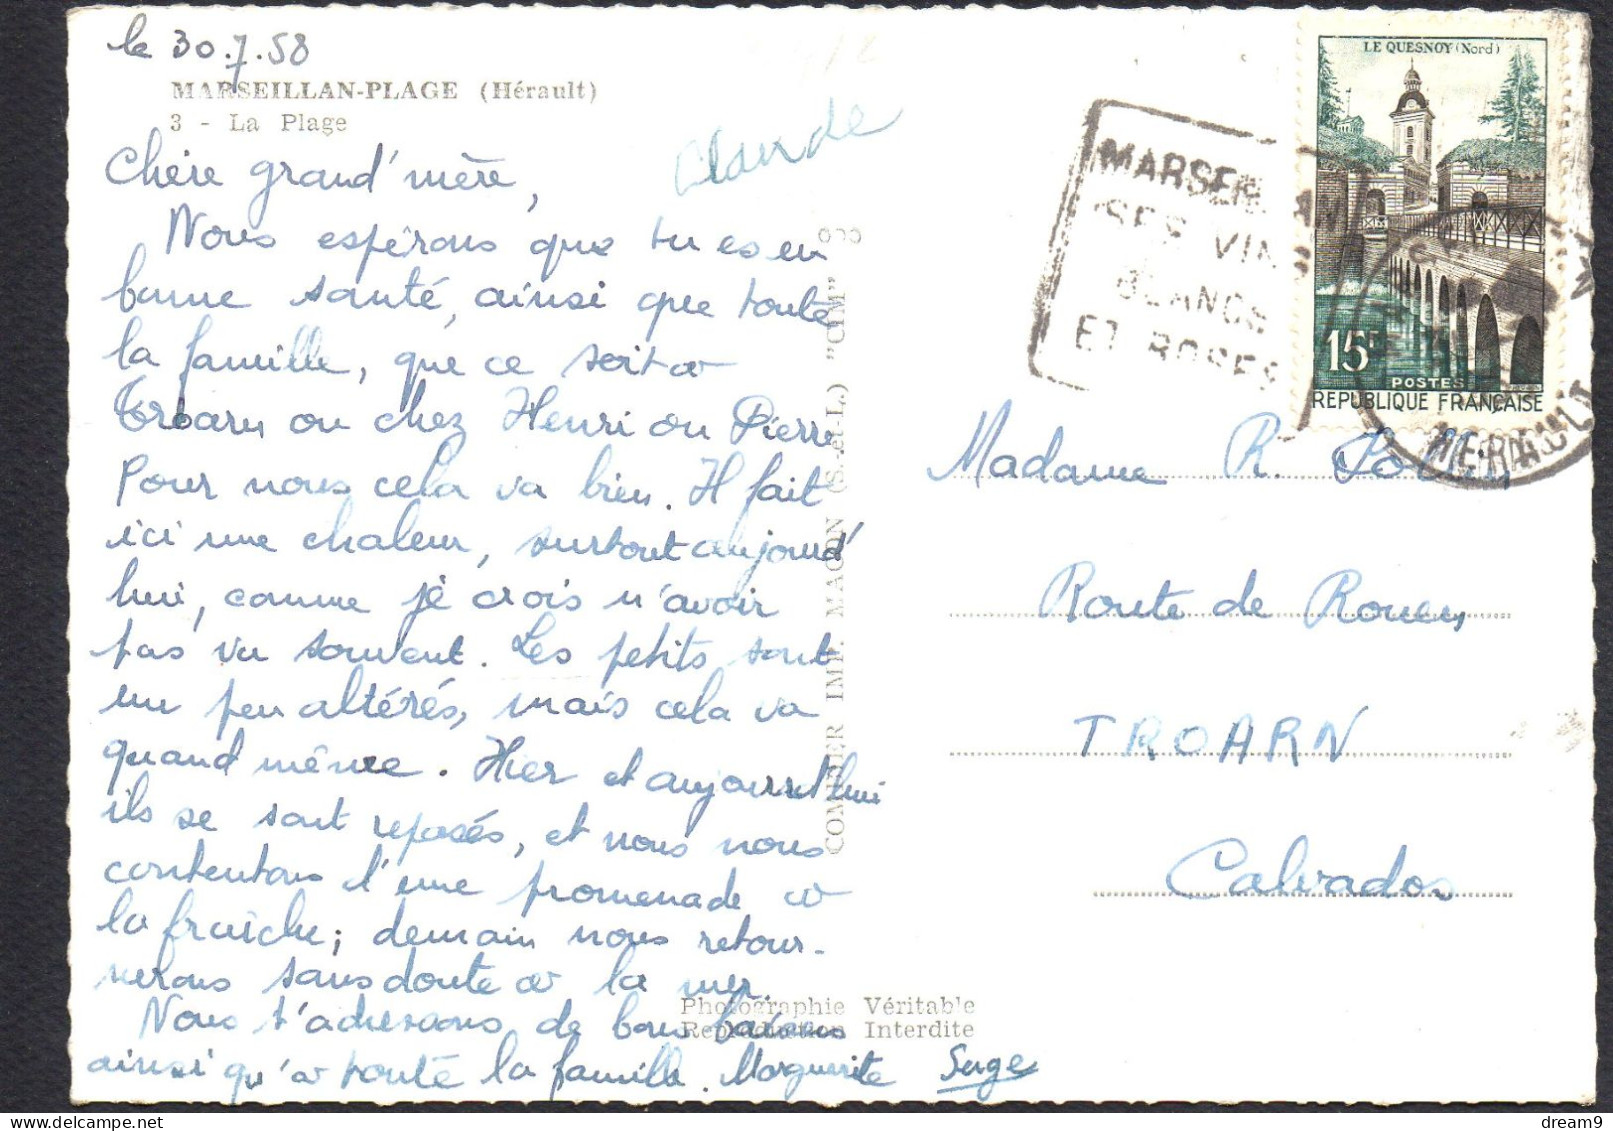 le 30.7.58
MARSEILLAN-PLAGE (Hérault)
3 - La Plage
Claude
Chère grand'mère,
Nous espérons que tu es en
bonne santé, ainsi que toute
la famille, que ce soit à
Troarn ou chez Henri ou Pierre
Pour nous cela va bien. Il fait
ici une chaleur, surtout aujourd'
hui, comme je crois n'avoir
pas vu souvent. Les petits sont
un peu altérés, mais cela va
quand même. Hier et aujourd'hui
ils se sont reposés, et nous nous
contentons d'une promenade à
la fraîche; demain nous retour-
nerons sans doute à la mer.
Nous t'adressons de bons baisers
ainsi qu'à toute la famille. Marguerite Serge
COMBIER IMP. MACON (S.-et-L.) "CIM"
Photographie Véritable
Reproduction Interdite
LE QUESNOY (Nord)
15F
POSTES
REPUBLIQUE FRANÇAISE
MARSEILLAN
SES VINS
BLANCS
ET ROSES
HERAULT
Madame R.
Route de Rouen
TROARN
Calvados
dream9